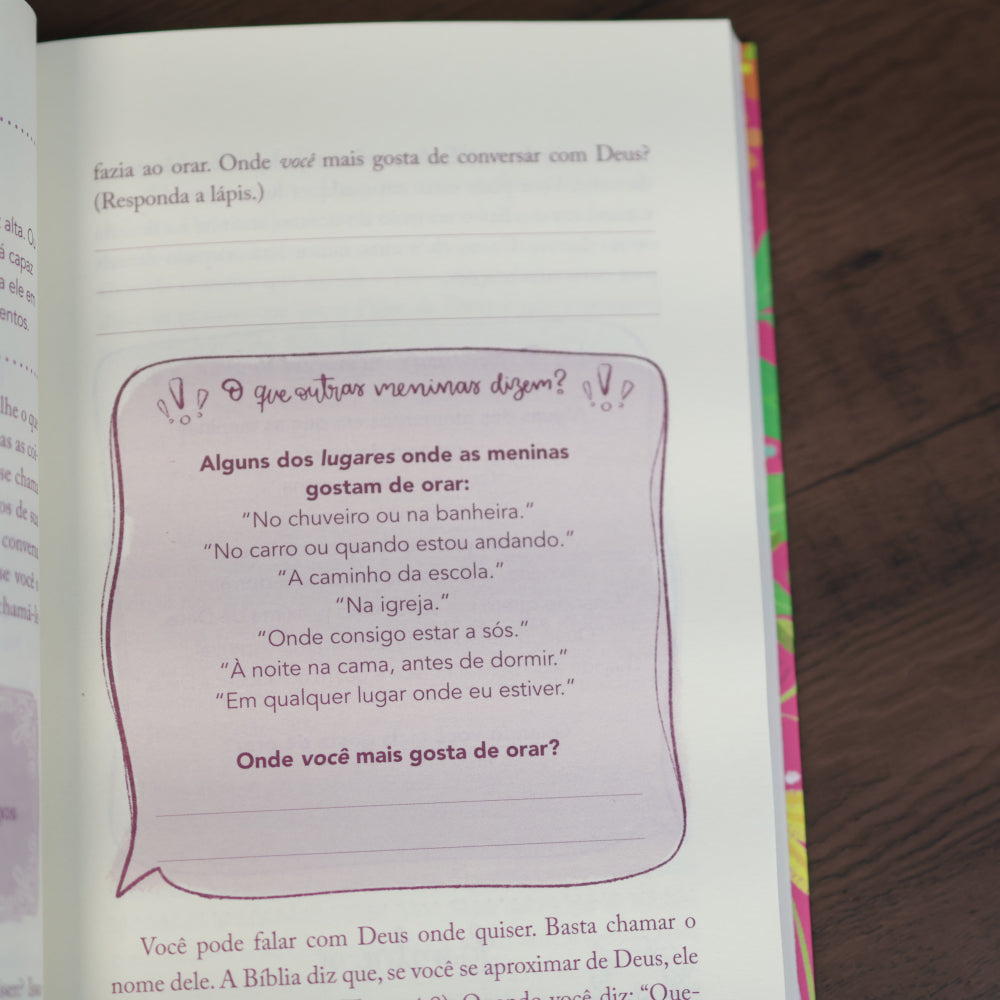 alta. O
á capaz
a ele em
entos.
lhe o que
as as coi-
se chama
os de sua
se você
chami-
fazia ao orar. Onde você mais gosta de conversar com Deus?
(Responda a lápis.)
O que outras meninas dizem?
Alguns dos lugares onde as meninas
gostam de orar:
“No chuveiro ou na banheira.”
“No carro ou quando estou andando.”
“A caminho da escola.”
“Na igreja.”
“Onde consigo estar a sós.”
“À noite na cama, antes de dormir.”
“Em qualquer lugar onde eu estiver.”
Onde você mais gosta de orar?
Você pode falar com Deus onde quiser. Basta chamar o
nome dele. A Bíblia diz que, se você se aproximar de Deus, ele
Quando você diz: “Que-